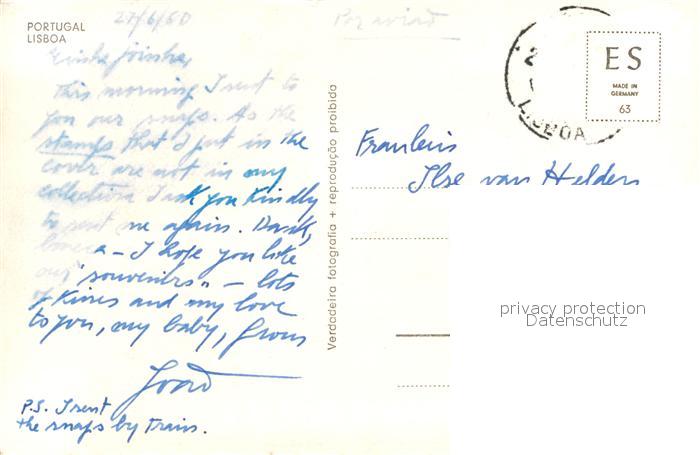 PORTUGAL
LISBOA
27/6/60
Por avião
This morning I sent to
you our snaps. As the
stamps that I put in the
cover are not in my
collection I ask you kindly
to sent me again.
- I hope you like
our "souvenirs" - lots
of kisses and my love
to you, my baby, from
João
P.S. I sent
the snaps by train.
Verdadeira fotografia + reprodução proibida
ES
MADE IN
GERMANY
63
LISBOA
Fraulein
Ilse van Helden
privacy protection
Datenschutz